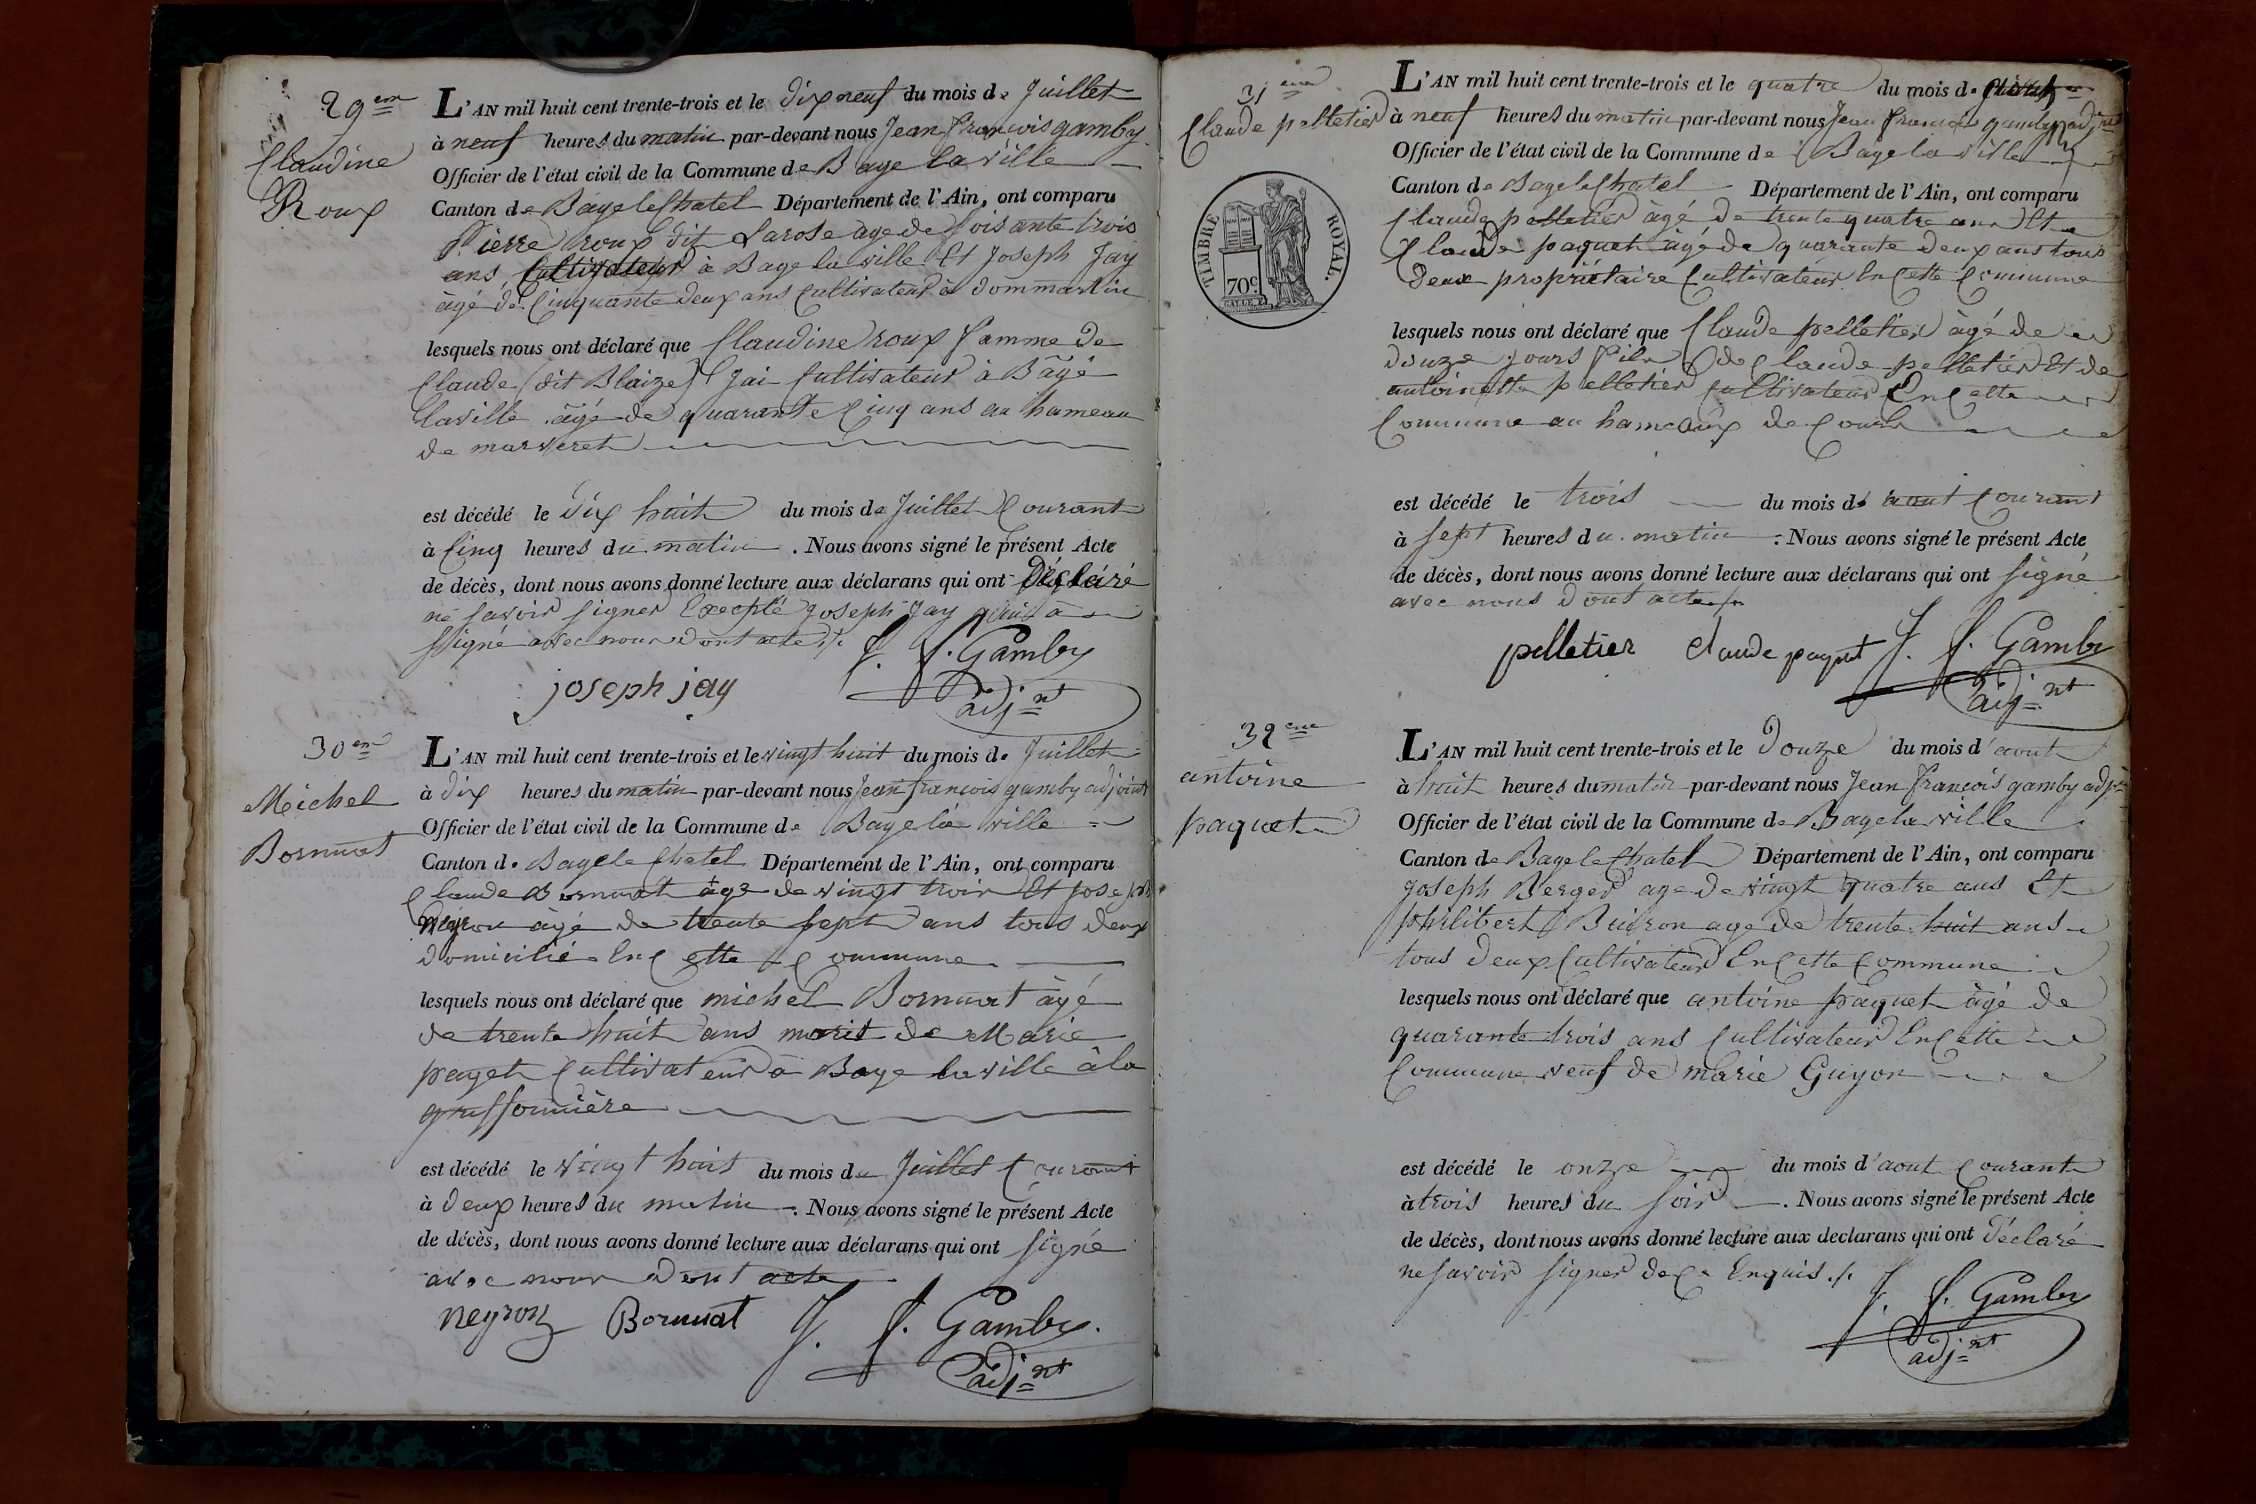 29eme
Claudine
Roux
L'AN mil huit cent trente-trois et le dix neuf du mois de Juillet
à neuf heures du matin par-devant nous Jean françois gamby
Officier de l'état civil de la Commune de Bage la ville
Canton de Bage le Chatel Département de l'Ain, ont comparu
Pierre roux dit Larose age de soisante trois
ans Cultivateur à Bage la ville Et Joseph Jay
agé de Cinquante deux ans Cultivateur à dommartin
lesquels nous ont déclaré que Claudine roux famme de
Claude (dit Blaize) Jai Cultivateur à Bagé
laville âgé de quarante Cinq ans au hameau
de marveret
est décédé le Dix huit du mois de Juillet Courant
à Cinq heures du matin. Nous avons signé le présent Acte
de décès, dont nous avons donné lecture aux déclarans qui ont Déclaré
ne savoir signer Excepté joseph Jay qui a
signé avec nous dont acte ./.
J. f. Gamby
joseph jay
adjnt
30eme
Michel
Bornuat
L'AN mil huit cent trente-trois et le vingt huit du mois de Juillet
à dix heures du matin par-devant nous Jean françois gamby adjoint
Officier de l'état civil de la Commune de Bage la ville
Canton de Bage le Chatel Département de l'Ain, ont comparu
Claude Bornuat âgé de vingt trois Et joseph
neyron âgé de trente sept ans tous deux
domicilié En Cette Commune
lesquels nous ont déclaré que michel Bornuat âgé
de trente huit ans marit de Marie
paget Cultivateur à Bage la ville à la
griffonnière
est décédé le vingt huit du mois de Juillet Courant
à deux heures du matin. Nous avons signé le présent Acte
de décès, dont nous avons donné lecture aux déclarans qui ont signé
avec nous Dont acte
neyron Bornuat J. f. Gamby.
adjnt
31eme
Claude pelletier
TIMBRE ROYAL.
70c.
L'AN mil huit cent trente-trois et le quatre du mois d
à neuf heures du matin par-devant nous Jean francois gamby adjnt
Officier de l'état civil de la Commune de Bage la ville
Canton de Bage le Chatel Département de l'Ain, ont comparu
Claude pelletier âgé de trente quatre ans Et
Claude paquet âgé de quarante deux ans tous
deux propriétaire Cultivateur En Cette Commune
lesquels nous ont déclaré que Claude pelletier âgé de
douze jours fils de Claude pelletier Et de
antoinette pelletier Cultivateur En Cette
Commune au hameaux de
est décédé le trois du mois d aout Courant
à sept heures du matin. Nous avons signé le présent Acte
de décès, dont nous avons donné lecture aux déclarans qui ont signé
avec nous Dont acte
pelletier claude paquet J. f. Gamby
adjnt
32eme
antoine
paquet
L'AN mil huit cent trente-trois et le Douze du mois d'aout
à huit heures du matin par-devant nous Jean françois gamby adjnt
Officier de l'état civil de la Commune de Bage la ville
Canton de Bage le Chatel Département de l'Ain, ont comparu
joseph Berger age de vingt quatre ans Et
philibert Buiron age de trente huit ans
tous deux Cultivateur En Cette Commune
lesquels nous ont déclaré que antoine paquet âgé de
quarante trois ans Cultivateur En Cette
Commune veuf de marie Guyon
est décédé le onze du mois d'aout Courant
à trois heures du soir. Nous avons signé le présent Acte
de décès, dont nous avons donné lecture aux declarans qui ont Déclaré
ne savoir signer de Ce Enquis ./.
J. f. Gamby
adjnt